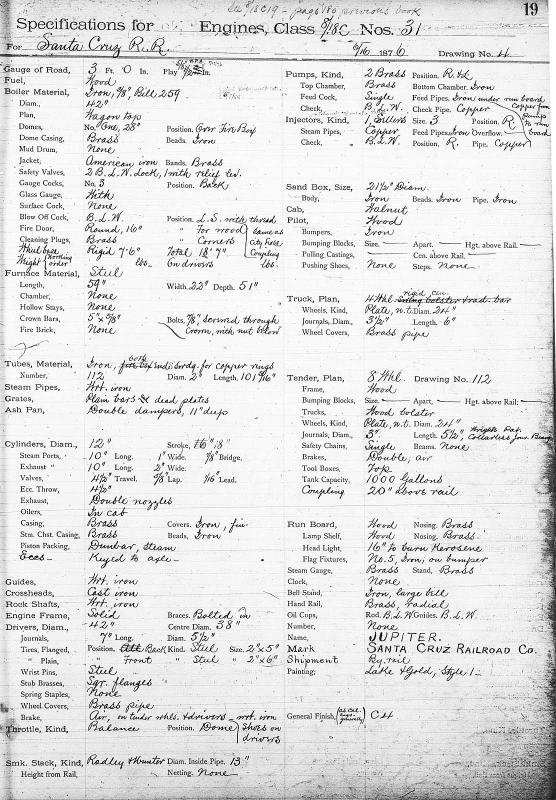 See 8/18 C 19 - page 168 previous book
19
Specifications for Engines, Class 8/18C Nos. 31
For Santa Cruz R.R. 5/16 1876 Drawing No. 4
Gauge of Road, 3 Ft. 0 In. Play
Fuel, Wood
Boiler Material, Iron, 3/8", Bill 259
Diam., 42"
Plan, Wagon top
Domes, No. One, 28" Position. Over Fire Box
Dome Casing, Brass Beads. Iron
Mud Drum, None
Jacket, American iron Bands. Brass
Safety Valves, 2 B.L.W. Lock, 1 with relief lev.
Gauge Cocks, No. 3 Position. Back
Glass Gauge, With
Surface Cock, None
Blow Off Cock, B.L.W. Position. L.S. with thread
Fire Door, Round, 16" " for wood
Cleaning Plugs, Brass " Corners
same as city hose coupling
Wheel base Rigid 7' 6" Total 18' 7"
Weight working order lbs. On drivers lbs.
Furnace Material, Steel
Length, 59" Width. 22" Depth. 51"
Chamber, None
Hollow Stays, None
Crown Bars, 5" x 5/8" Bolts, 7/8", screwed through
Fire Brick, None Crown, with nut below
Tubes, Material, Iron, both ends swdg. for copper rings
Number, 112 Diam. 2" Length, 101 9/16"
Steam Pipes, Wrt. iron
Grates, Plain bars & dead plates
Ash Pan, Double dampers, 11" deep
Cylinders, Diam., 12" Stroke, 16" 18"
Steam Ports, 10" Long. 1" Wide. 7/8" Bridge.
Exhaust " 10" Long. 2" Wide.
Valves, 4 1/2" Travel. 5/8" Lap. 1/16" Lead.
Ecc. Throw, 4 1/2"
Exhaust, Double nozzles
Oilers, In cab
Casing, Brass Covers. Iron, fin
Stm. Chst. Casing, Brass Beads, Iron
Piston Packing, Dunbar, steam
Eccs — Keyed to axle —
Guides, Wrt. iron
Crossheads, Cast iron
Rock Shafts, Wrt. iron
Engine Frame, Solid Braces. Bolted in
Drivers, Diam., 42" Centre Diam. 38"
Journals, 7" Long. Diam. 5 1/2"
Tires, Flanged, Position, Back Kind. Steel Size. 2" x 5"
" Plain, " Front " Steel " 2" x 6"
Wrist Pins, Steel
Stub Brasses, Sqr. flanges
Spring Staples, None
Wheel Covers, Brass pipe
Brake, Air, on tender whls. & drivers - wrt. iron
Throttle, Kind, Balance Position. Dome shoes on drivers
Smk. Stack, Kind, Radley & Hunter Diam. Inside Pipe. 13"
Height from Rail, Netting. None
Pumps, Kind, 2 Brass Position. R & L
Top Chamber, Brass Bottom Chamber. Iron
Feed Cock, Single Feed Pipes. Iron under run board
Check, B.L.W. Check Pipe. Copper
copper from pump to run board
Injectors, Kind, 1, Sellers Size. 3 Position. R
Steam Pipes, Copper Feed Pipes. Iron Overflow. —
Check, B.L.W. Position. R. Pipe. Copper
Sand Box, Size, 21 1/2" Diam.
Body, Iron Beads. Iron Pipe. Iron
Cab, Walnut
Pilot, Wood
Bumpers, Iron
Bumping Blocks, Size. — Apart. — Hgt. above Rail. —
Pulling Castings, — Cen. above Rail. —
Pushing Shoes, None Steps. None
Truck, Plan, 4 Whl. rigid cen.
Wheels, Kind, Plate, w.t. Diam. 24"
Journals, Diam., 3 1/2" Length. 6"
Wheel Covers, Brass pipe
Tender, Plan, 8 Whl. Drawing No. 112
Frame, Wood
Bumping Blocks, Size. — Apart. — Hgt. above Rail. —
Trucks, Wood bolster
Wheels, Kind, Plate, w.t. Diam. 24"
Journals, Diam., 3" Length. 5 1/2", Wright Pat. Collarless Jour. Bearg
Safety Chains, Single Beams. None
Brakes, Double, air
Tool Boxes, Top
Tank Capacity, 1000 Gallons
Coupling 20" above rail
Run Board, Wood Nosing. Brass
Lamp Shelf, Wood Nosing. Brass
Head Light, 16" to burn Kerosene
Flag Fixtures, No. 5, Iron, on bumper
Steam Gauge, Brass Stand, Brass
Clock, None
Bell Stand, Iron, large bell
Hand Rail, Brass, radial
Oil Cups, Rod. B.L.W. Guides. B.L.W.
Number, None
Name, JUPITER.
Mark SANTA CRUZ RAILROAD CO.
Shipment By rail
Painting, Lake & Gold, Style 1 —
General Finish, C 4